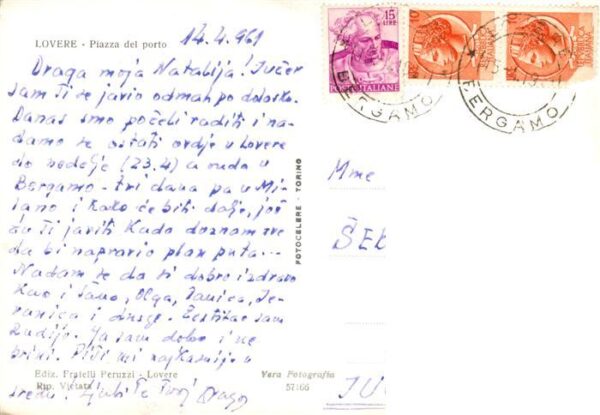 LOVERE - Piazza del porto
14.4.961
Draga moja Natalija! Jučer
sam Ti se javio odmah po dolasku.
Danas smo počeli raditi i na-
damo se ostati ovdje u Lovere
do nedelje (23.4) a onda u
Bergamo - tri dana pa u Mi-
lano i kako će biti dalje, još
ću Ti javiti kada doznam sve
da bi napravio plan puta...
Nadam se da si dobro i zdravo
kao i Olga,
i druge.
sam
Ja sam dobro i ne
brini. Piši mi najkasnije u
sredu. Ljubi Te Tvoj Drago
Ediz. Fratelli Peruzzi - Lovere
Rip. Vietata
Vera Fotografia
57166
FOTOCELERE - TORINO
15
LIRE
POSTE ITALIANE
BERGAMO
BERGAMO
Mme
ŠEK
JU